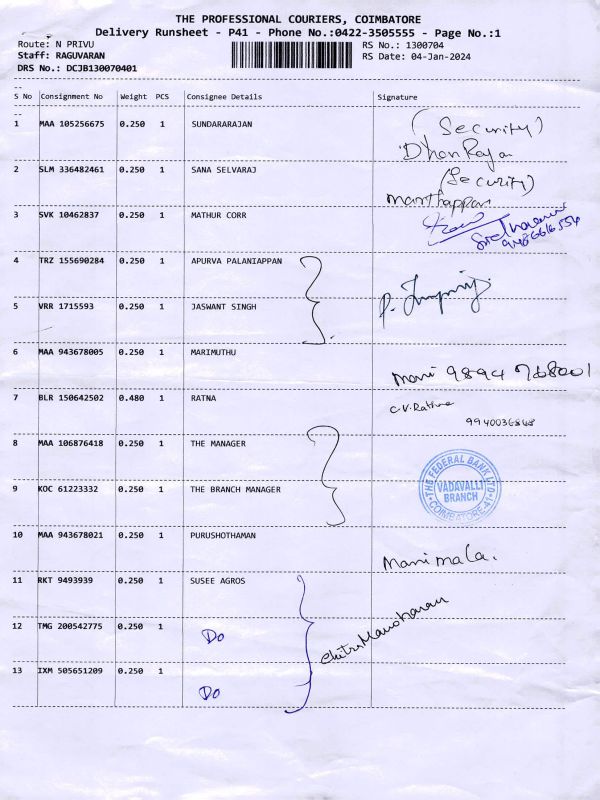 THE PROFESSIONAL COURIERS, COIMBATORE
Delivery Runsheet - P41 - Phone No.:0422-3505555 - Page No.:1
Route: N PRIVU RS No.: 1300704
Staff: RAGUVARAN RS Date: 04-Jan-2024
DRS No.: DCJB130070401
--
S No Consignment No Weight PCS Consignee Details Signature
--
1 MAA 105256675 0.250 1 SUNDARARAJAN (Security)
2 SLM 336482461 0.250 1 SANA SELVARAJ (Security)
3 SVK 10462837 0.250 1 MATHUR CORR
4 TRZ 155690284 0.250 1 APURVA PALANIAPPAN
5 VRR 1715593 0.250 1 JASWANT SINGH P.
6 MAA 943678005 0.250 1 MARIMUTHU
Mani 9894 768001
7 BLR 150642502 0.480 1 RATNA C.V. Rathna
8 MAA 106876418 0.250 1 THE MANAGER
THE FEDERAL BANK LTD.
VADAVALLI
BRANCH
COIMBATORE-41
9 KOC 61223332 0.250 1 THE BRANCH MANAGER
10 MAA 943678021 0.250 1 PURUSHOTHAMAN
Manimala.
11 RKT 9493939 0.250 1 SUSEE AGROS
Chitra Manoharan
12 TMG 200542775 0.250 1 Do
13 IXM 505651209 0.250 1 Do